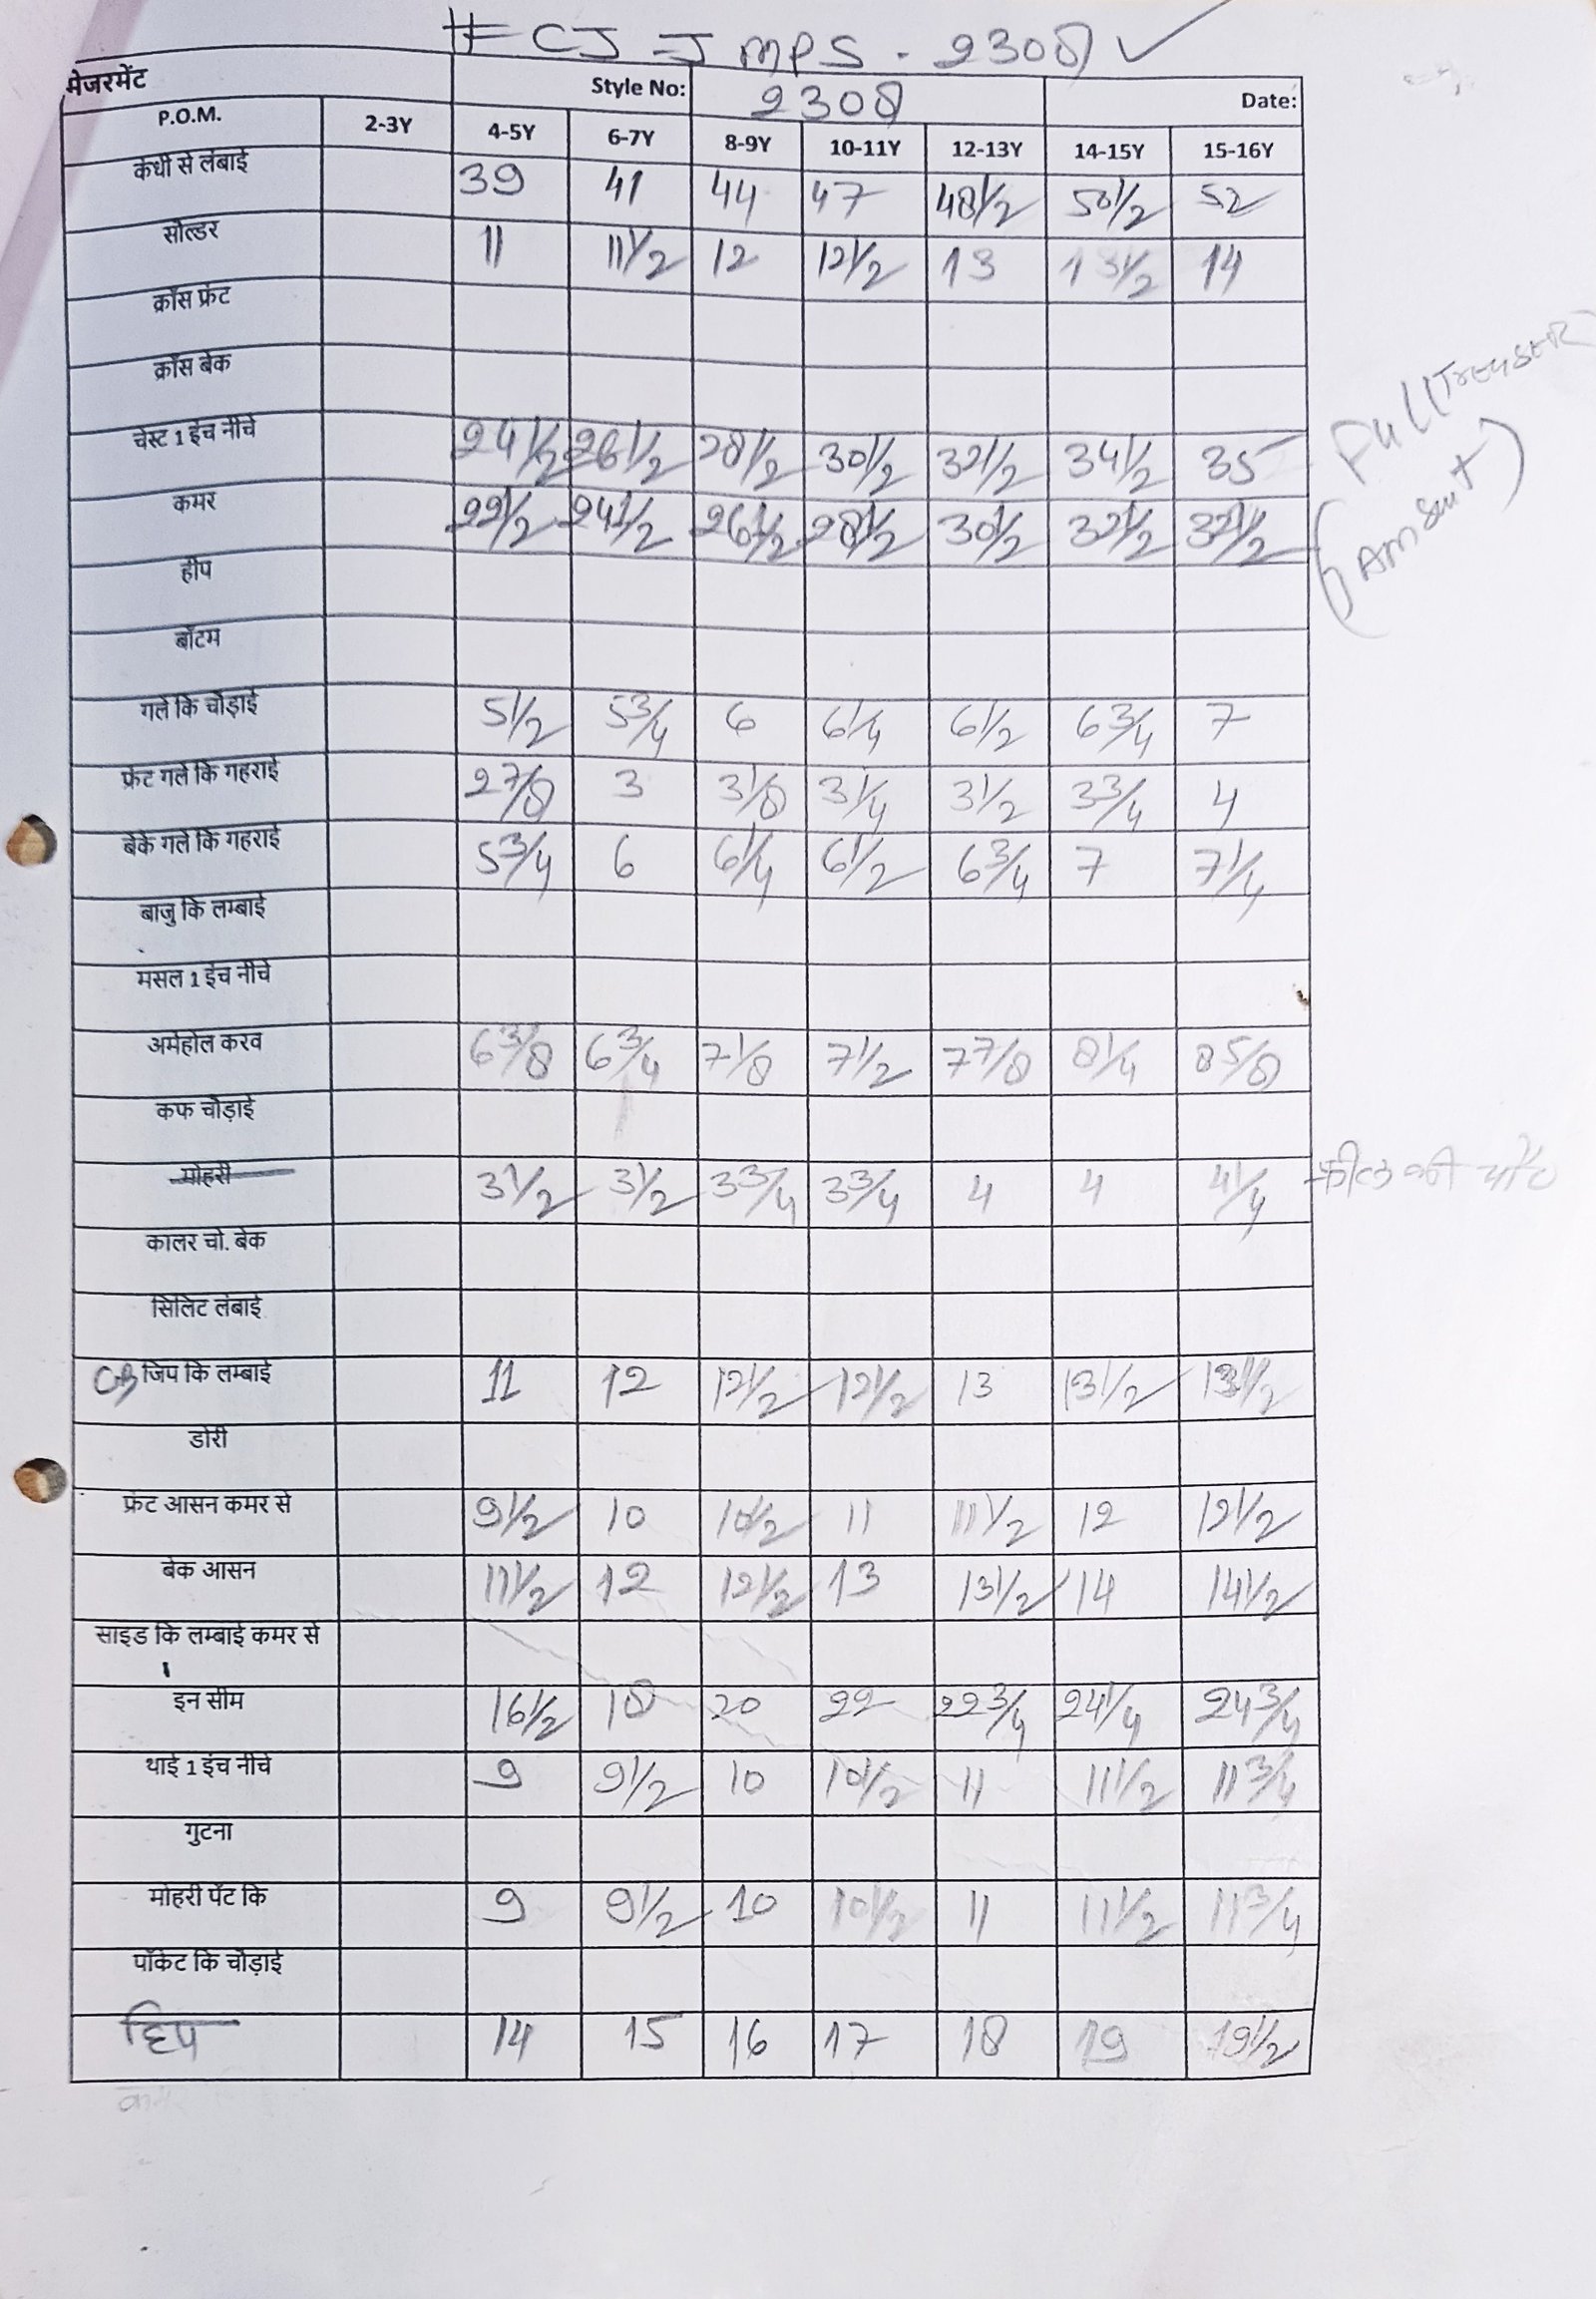 FCJ = J MPS - 2308 ✓
मेजरमेंट Style No: 2308 Date:
P.O.M. 2-3Y 4-5Y 6-7Y 8-9Y 10-11Y 12-13Y 14-15Y 15-16Y
कंधी से लंबाई 39 41 44 47 48 1/2 50 1/2 52
सोल्डर 11 11 1/2 12 12 1/2 13 13 1/2 14
क्रॉस फ्रंट
क्रॉस बेक
चेस्ट 1 इंच नीचे 24 1/2 26 1/2 28 1/2 30 1/2 32 1/2 34 1/2 35
कमर 22 1/2 24 1/2 26 1/2 28 1/2 30 1/2 32 1/2 32 1/2
हीप
बॉटम
गले कि चोड़ाई 5 1/2 5 3/4 6 6 1/4 6 1/2 6 3/4 7
फ्रंट गले कि गहराई 2 7/8 3 3 1/8 3 1/4 3 1/2 3 3/4 4
बेके गले कि गहराई 5 3/4 6 6 1/4 6 1/2 6 3/4 7 7 1/4
बाजु कि लम्बाई
मसल 1 इंच नीचे
अर्महोल करव 6 3/8 6 3/4 7 1/8 7 1/2 7 7/8 8 1/4 8 5/8
कफ चौड़ाई
मोहरी 3 1/2 3 1/2 3 3/4 3 3/4 4 4 4 1/4
कालर चो. बेक
सिलिट लंबाई
CB जिप कि लम्बाई 11 12 12 1/2 12 1/2 13 13 1/2 13 1/2
डोरी
फ्रंट आसन कमर से 9 1/2 10 10 1/2 11 11 1/2 12 12 1/2
बेक आसन 11 1/2 12 12 1/2 13 13 1/2 14 14 1/2
साइड कि लम्बाई कमर से
इन सीम 16 1/2 18 20 22 22 3/4 24 1/4 24 3/4
थाई 1 इंच नीचे 9 9 1/2 10 10 1/2 11 11 1/2 11 3/4
गुटना
मोहरी पेंट कि 9 9 1/2 10 10 1/2 11 11 1/2 11 3/4
पॉकेट कि चौड़ाई
हिप 14 15 16 17 18 19 19 1/2
कमर